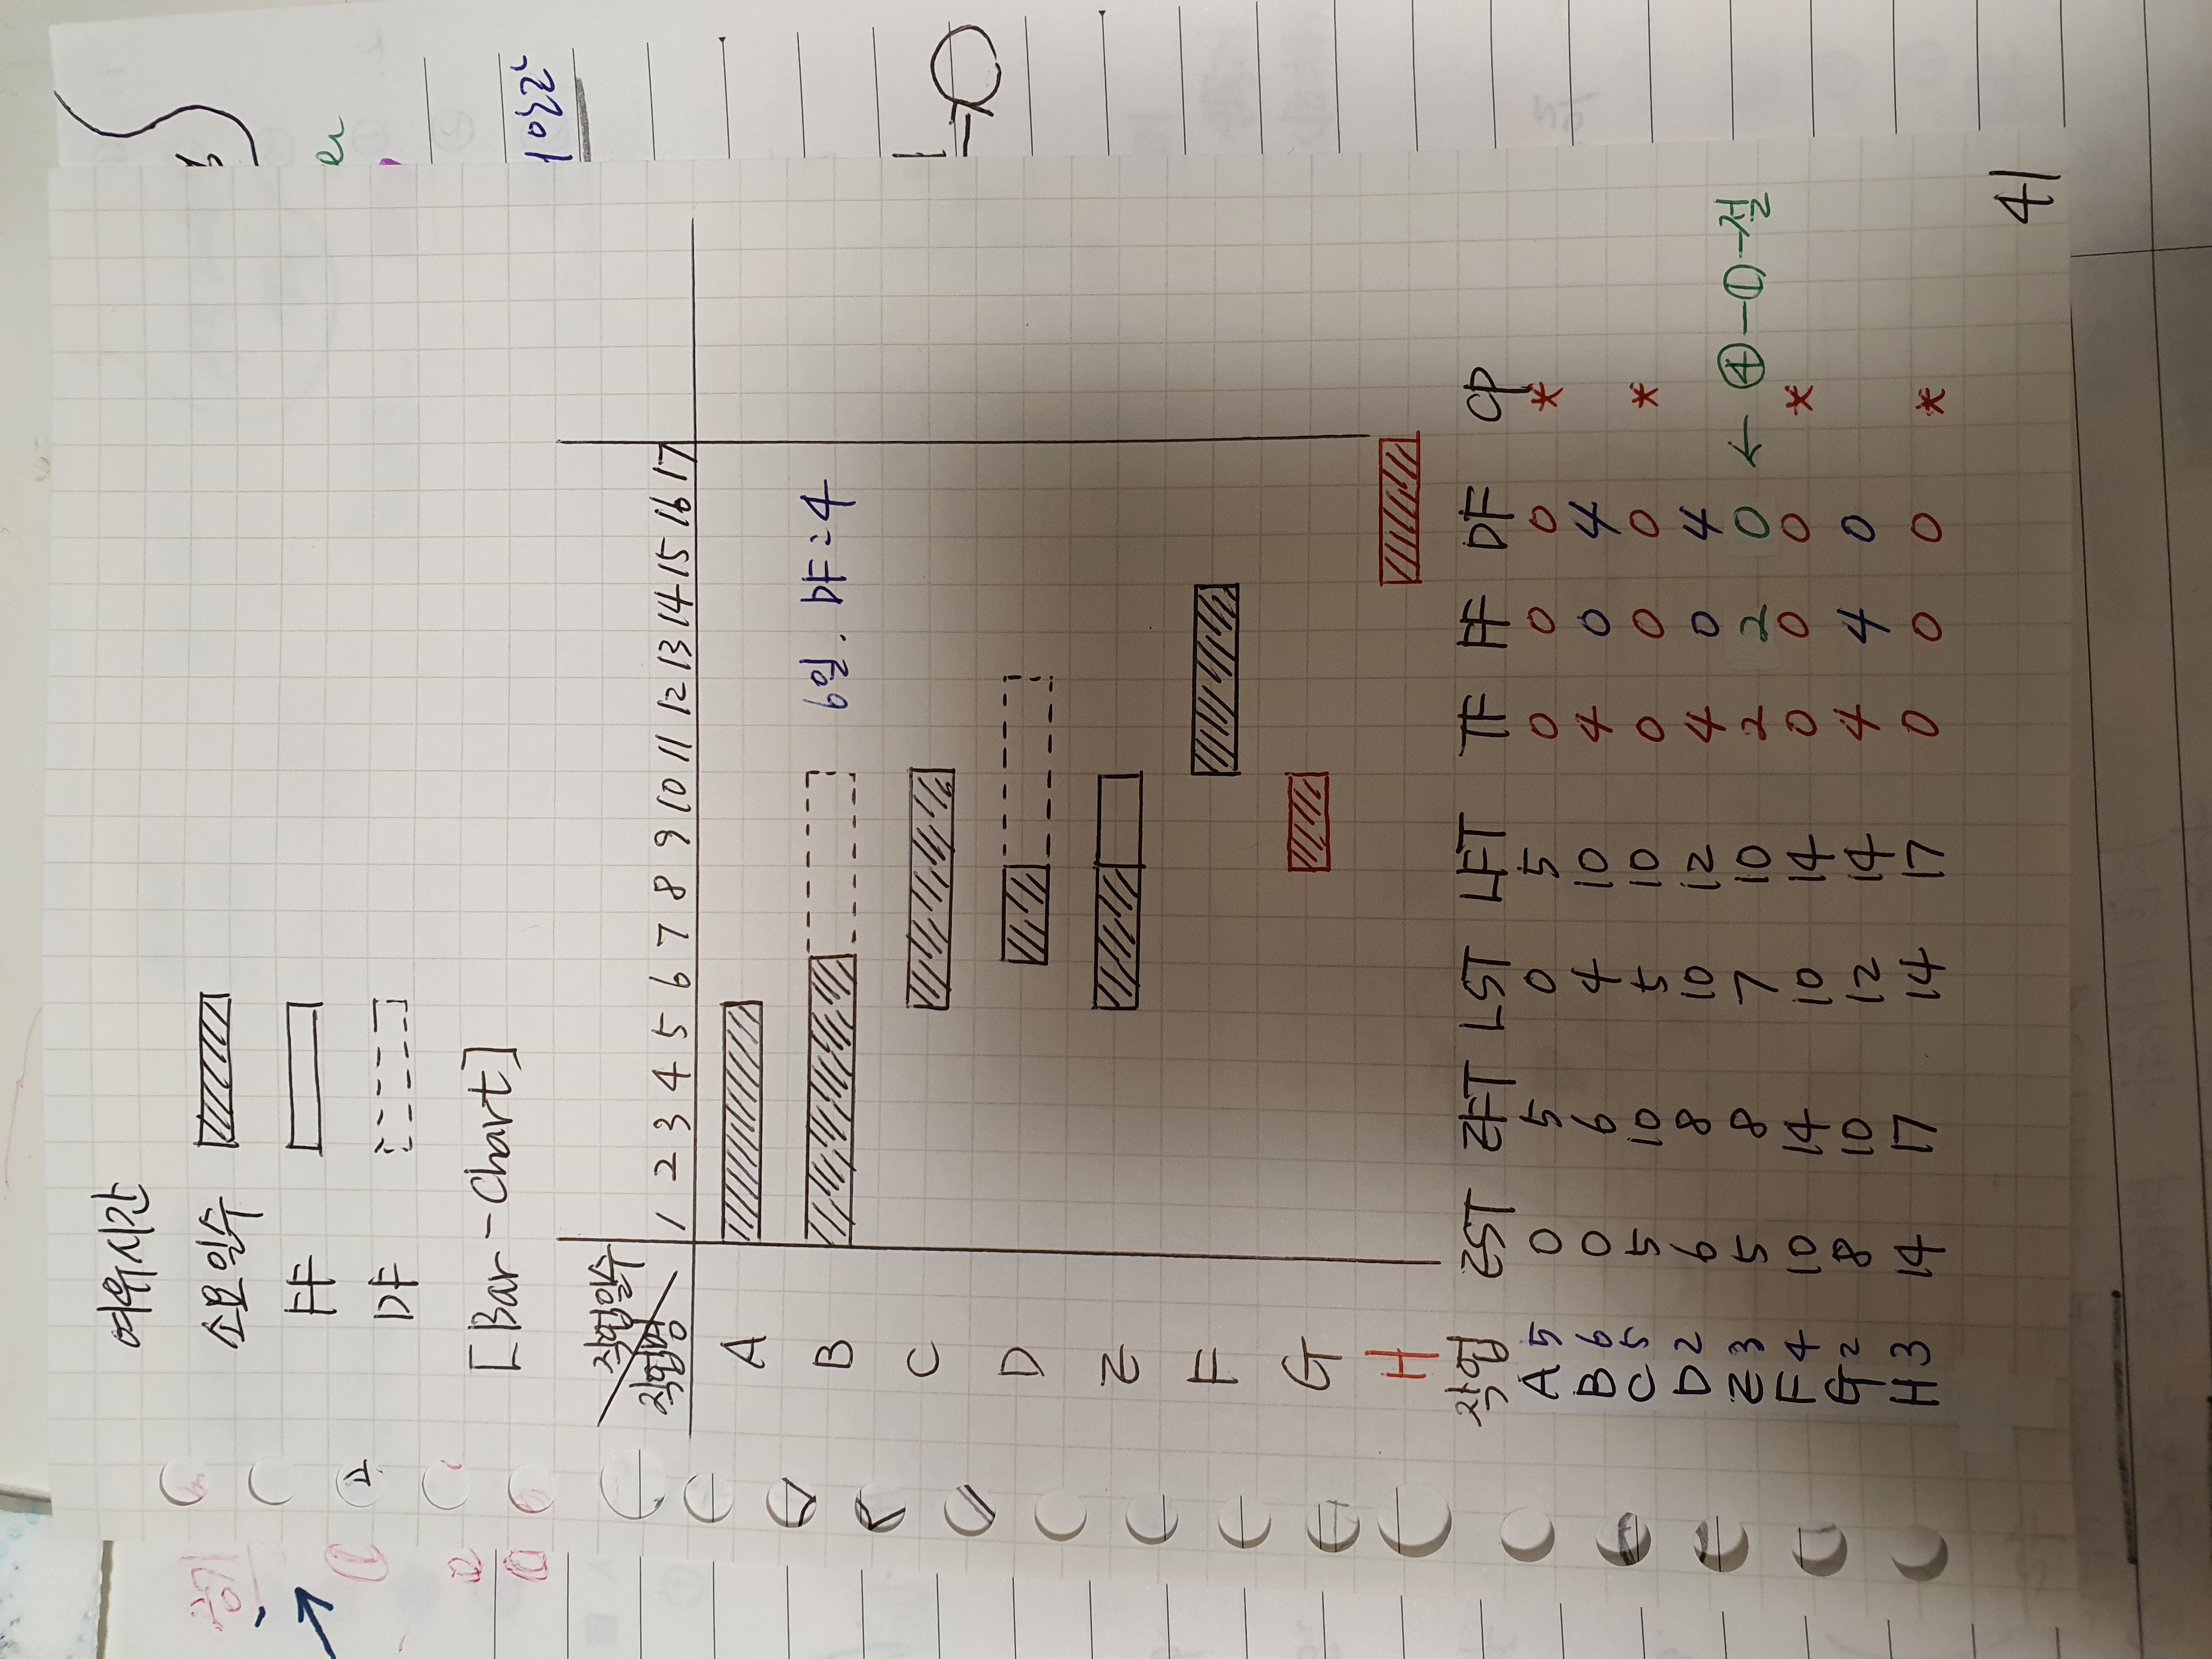 여유시간
소요일수
FF
DF
[Bar-Chart]
작업일수
작업명
1 2 3 4 5 6 7 8 9 10 11 12 13 14 15 16 17
A
B 6일. DF=4
C
D
E
F
G
H
작업 EST EFT LST LFT TF FF DF CP
A 5 0 5 0 5 0 0 0 *
B 6 0 6 4 10 4 0 4
C 5 5 10 5 10 0 0 0 *
D 2 6 8 10 12 4 0 4
E 3 5 8 7 10 2 2 0 ← ④-①-전
F 4 10 14 10 14 0 0 0 *
G 2 8 10 12 14 4 4 0
H 3 14 17 14 17 0 0 0 *
41